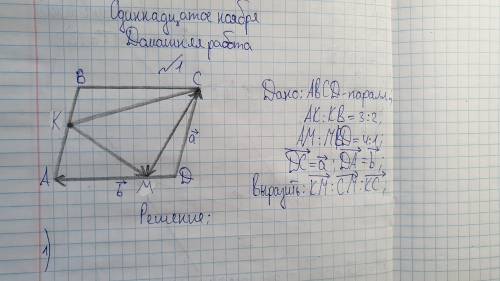 Одиннадцатое ноября
Домашняя работа
√1
B
C
K
A
M
D
a
b
Дано: ABCD-паралл.;
AK:KB=3:2;
AM:MD=4:1;
DC=a; DA=b;
Выразить: KM; CM; KC;
Решение:
1)